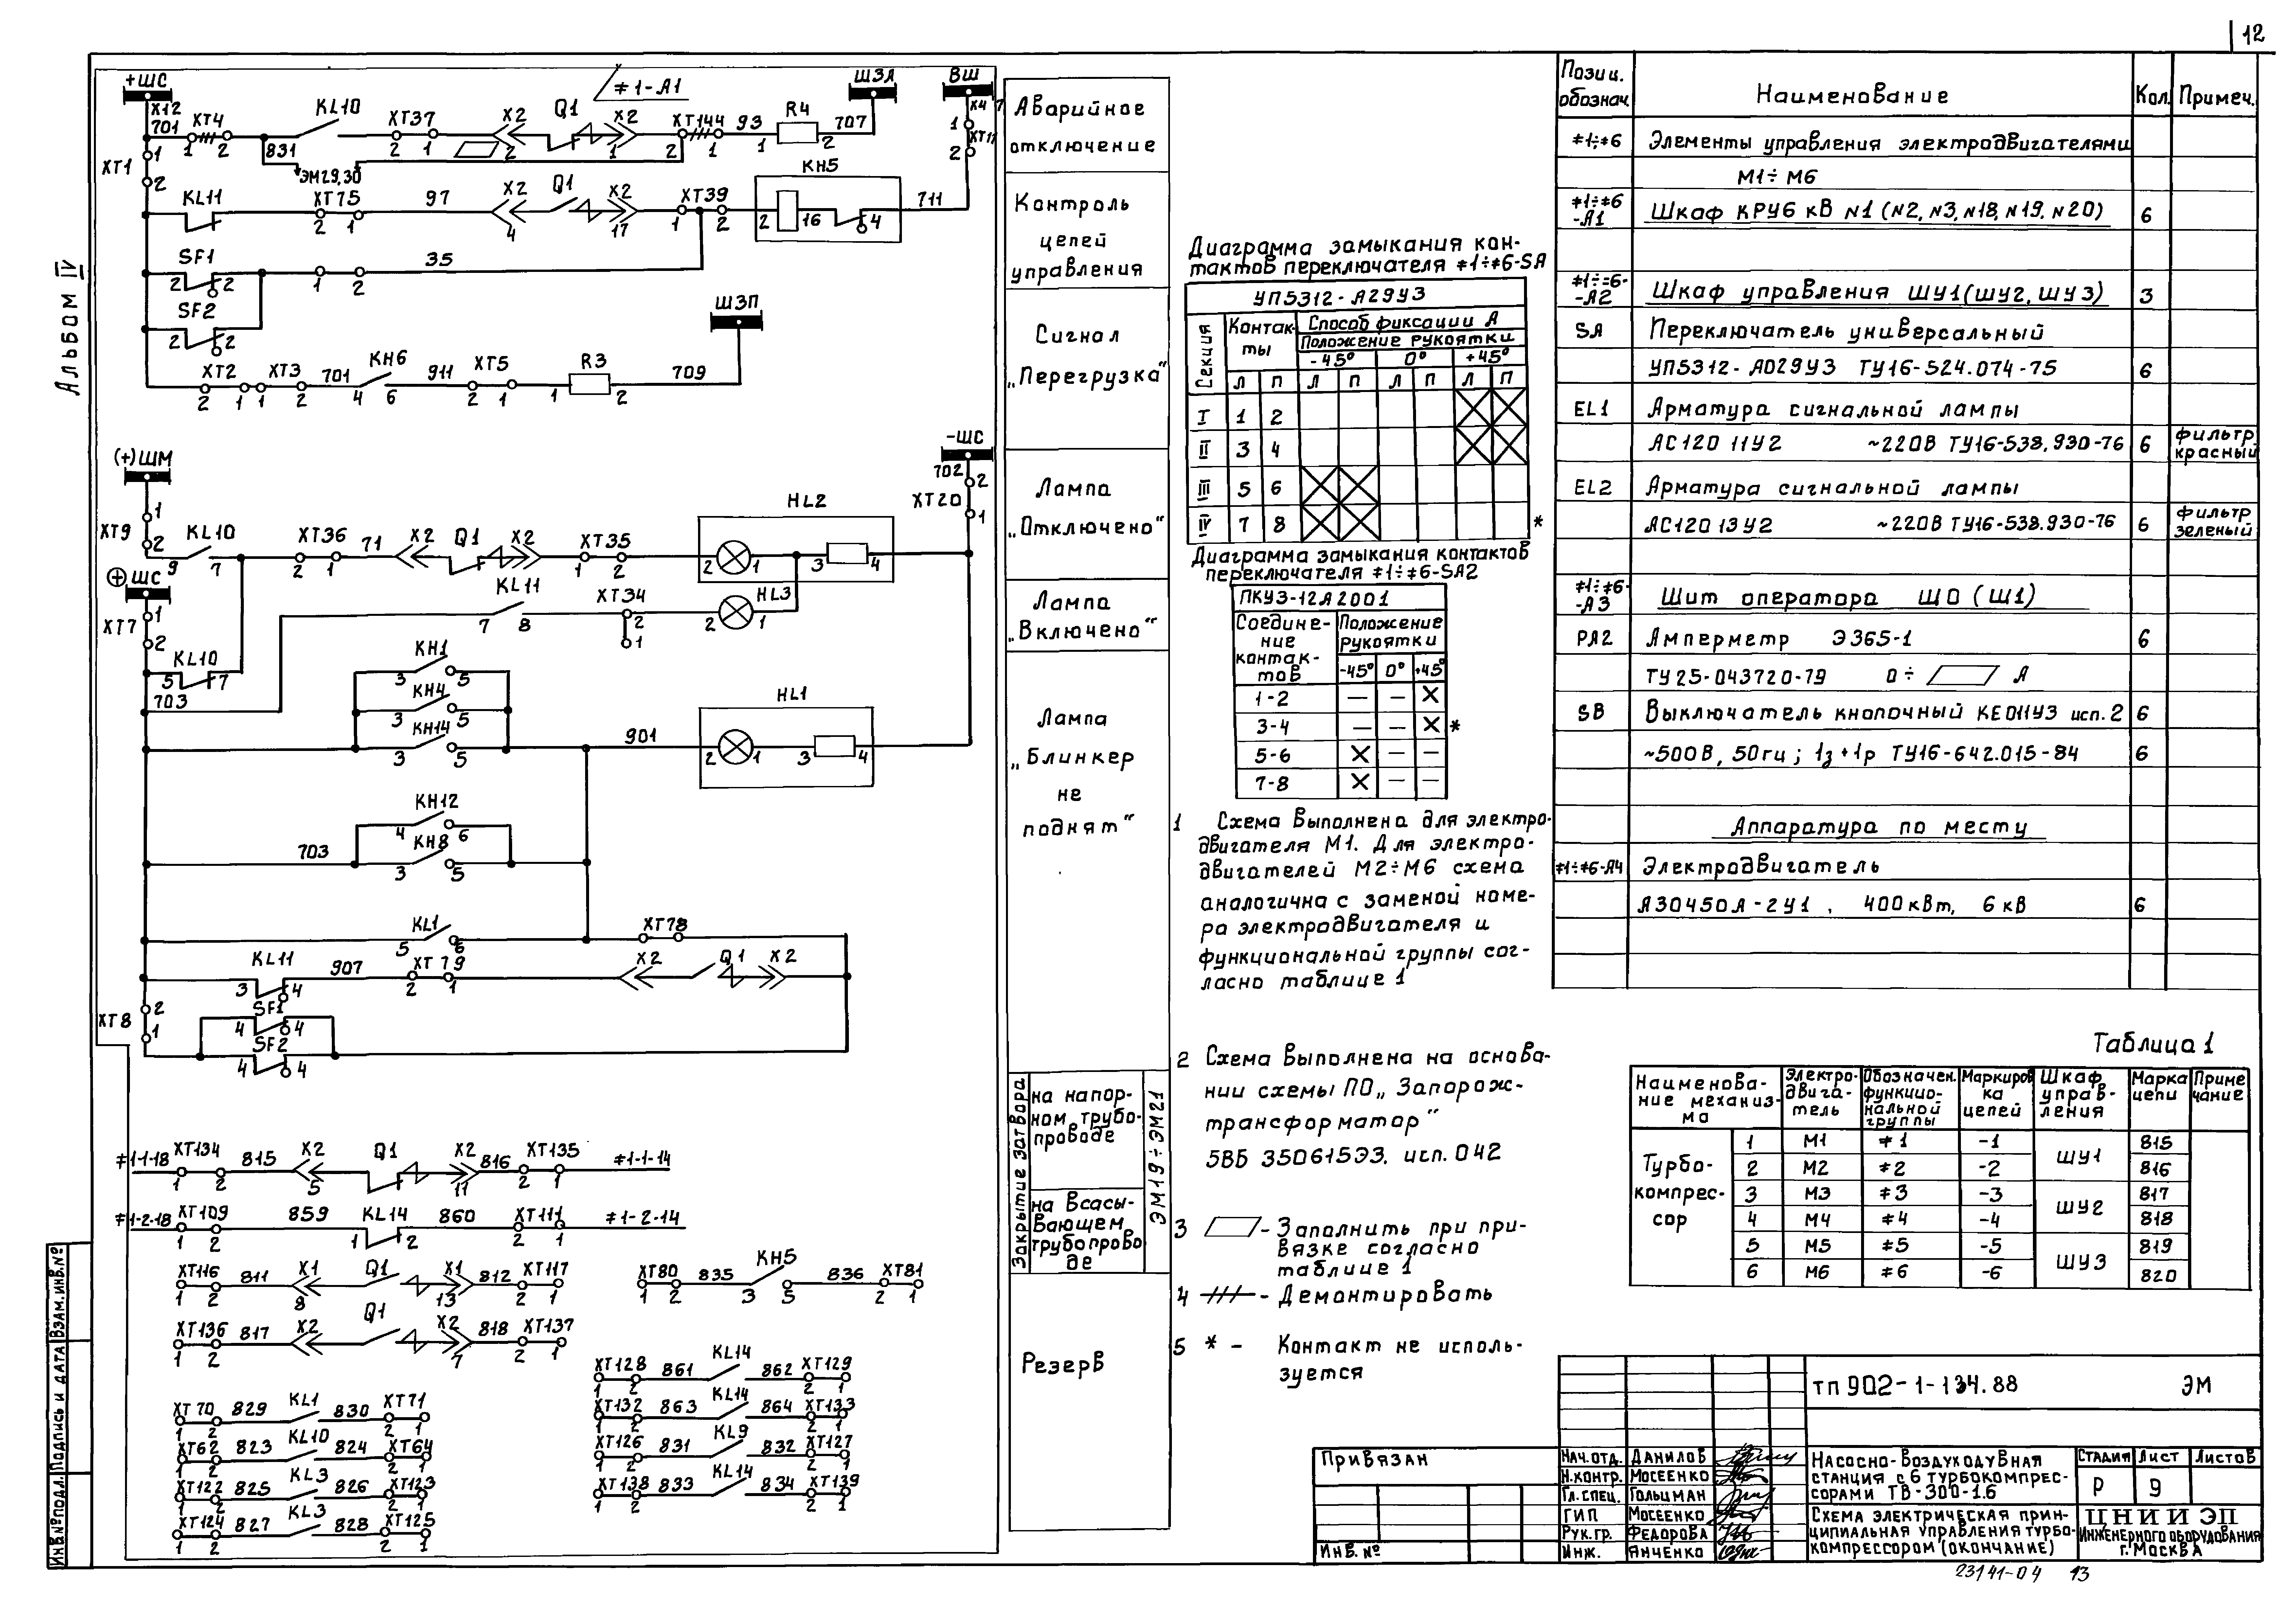 12
Альбом IV
+ШС
≠1-А1
ШЗА
ВШ
Х12
701
ХТ4
KL10
ХТ37
Х2
Q1
Х2
ХТ144
93
R4
707
Х4
1 2
831
2 1
2
1
2 1
1 2
1
ХТ11
2
ХТ1
1
2
ЭМ29,30
KL11
ХТ75
97
Х2
Q1
Х2
ХТ39
КН5
711
2 1
4
17
1 2
2 16 4
SF1
2 2
35
1 2
SF2
2 2
ШЗП
ХТ2
ХТ3
701
КН6
911
ХТ5
R3
709
2 1 1 2
4 6
2 1
1 2
(+)ШМ
-ШС
702
2
ХТ20
1
1
ХТ9
2
KL10
9 7
ХТ36
71
Х2
Q1
Х2
ХТ35
HL2
2 1
1 2
2 1 3 4
⊕ШС
1
ХТ7
2
KL11
7 8
ХТ34
2
1
HL3
2 1
KL10
5 7
703
КН1
3 5
КН4
3 5
КН14
3 5
901
HL1
2 1 3 4
КН12
4 6
703
КН8
3 5
KL1
5 6
ХТ78
KL11
3 4
907
ХТ79
2 1
Х2
Q1
Х2
2
ХТ8
1
SF1
4 4
SF2
4 4
≠1-1-18
ХТ134
815
Х2
Q1
Х2
816
ХТ135
≠1-1-14
1 2
5
11
2 1
≠1-2-18
ХТ109
859
KL14
860
ХТ111
≠1-2-14
1 2
1 2
2 1
ХТ116
811
Х1
Q1
Х1
812
ХТ117
1 2
8
13
2 1
ХТ80
835
КН5
836
ХТ81
1 2
3 5
2 1
ХТ136
817
Х2
Q1
Х2
818
ХТ137
1 2
7
2 1
ХТ128 861 KL14 862 ХТ129
1 2 2 1
ХТ132 863 KL14 864 ХТ133
1 2 2 1
ХТ126 831 KL9 832 ХТ127
1 2 2 1
ХТ138 833 KL14 834 ХТ139
1 2 2 1
ХТ70 829 KL1 830 ХТ71
1 2 2 1
ХТ62 823 KL10 824 ХТ64
1 2 2 1
ХТ122 825 KL3 826 ХТ123
1 2 2 1
ХТ124 827 KL3 828 ХТ125
1 2 2 1
Аварийное
отключение
Контроль
цепей
управления
Сигнал
„Перегрузка“
Лампа
„Отключено“
Лампа
„Включено“
Лампа
„Блинкер
не
поднят“
Закрытие затвора
на напор-
ном трубо-
проводе
на всасы-
вающем
трубопрово-
де
ЭМ19÷ЭМ21
Резерв
Диаграмма замыкания кон-
тактов переключателя ≠1÷≠6-SA
УП5312-А29У3
Секция
Контак-
ты
Способ фиксации А
Положение рукоятки
-45° 0° +45°
Л П Л П Л П Л П
I 1 2
II 3 4
III 5 6
IV 7 8 *
Диаграмма замыкания контактов
переключателя ≠1÷≠6-SA2
ПКУЗ-12А2001
Соедине-
ние
контак-
тов
Положение
рукоятки
-45° 0° +45°
1-2 — — X
3-4 — — X *
5-6 X — —
7-8 X — —
1 Схема выполнена для электро-
двигателя М1. Для электро-
двигателей М2÷М6 схема
аналогична с заменой номе-
ра электродвигателя и
функциональной группы сог-
ласно таблице 1
2 Схема выполнена на основа-
нии схемы ПО„ Запорож-
трансформатор“
5ВБ 3506153Э. исп. 042
3 - Заполнить при при-
вязке согласно
таблице 1
4 -///- - Демонтировать
5 * - Контакт не исполь-
зуется
Позиц.
обознач.
Наименование
Кол.
Примеч.
≠1÷≠6 Элементы управления электродвигателями
М1÷М6
≠1÷≠6
-А1 Шкаф КРУ6 кВ N1 (N2, N3, N18, N19, N20) 6
≠1÷≠6-
-А2 Шкаф управления ШУ1(ШУ2, ШУ3) 3
SA Переключатель универсальный
УП5312-А029У3 ТУ16-524.074-75 6
EL1 Арматура сигнальной лампы
АС120 11У2 ~220В ТУ16-538.930-76 6 фильтр красный
EL2 Арматура сигнальной лампы
АС120 13У2 ~220В ТУ16-538.930-76 6 фильтр зеленый
≠1÷≠6-
-А3 Щит оператора ЩО (Щ1)
РА2 Амперметр Э365-1 6
ТУ25-043720-79 0÷ А
SB Выключатель кнопочный КЕ011У3 исп. 2 6
~500В, 50гц; 1з+1р ТУ16-642.015-84 6
Аппаратура по месту
≠1÷≠6-А4 Электродвигатель
А30450А-2У1 , 400кВт, 6кВ 6
Таблица 1
Наименова-
ние механиз-
ма
Электро-
двига-
тель
Обозначен.
функцио-
нальной
группы
Маркиров
ка
цепей
Шкаф
управ-
ления
Марка
цепи
Приме
чание
Турбо-
компрес-
сор
1 М1 ≠1 -1 ШУ1 815
2 М2 ≠2 -2 816
3 М3 ≠3 -3 ШУ2 817
4 М4 ≠4 -4 818
5 М5 ≠5 -5 ШУ3 819
6 М6 ≠6 -6 820
ТП 902-1-134.88 ЭМ
Привязан
Инв. №
Нач.отд. Данилов
Н.контр. Мосеенко
Гл.спец. Гольцман
ГИП Мосеенко
Рук.гр. Федорова
Инж. Янченко
Насосно-воздуходувная
станция с 6 турбокомпрес-
сорами ТВ-300-1.6
Стадия Лист Листов
Р 9
Схема электрическая прин-
ципиальная управления турбо-
компрессором (окончание)
ЦНИИЭП
инженерного оборудования
г. Москва
Инв.№подл. Подпись и дата Взам.инв.№
23141-04 13